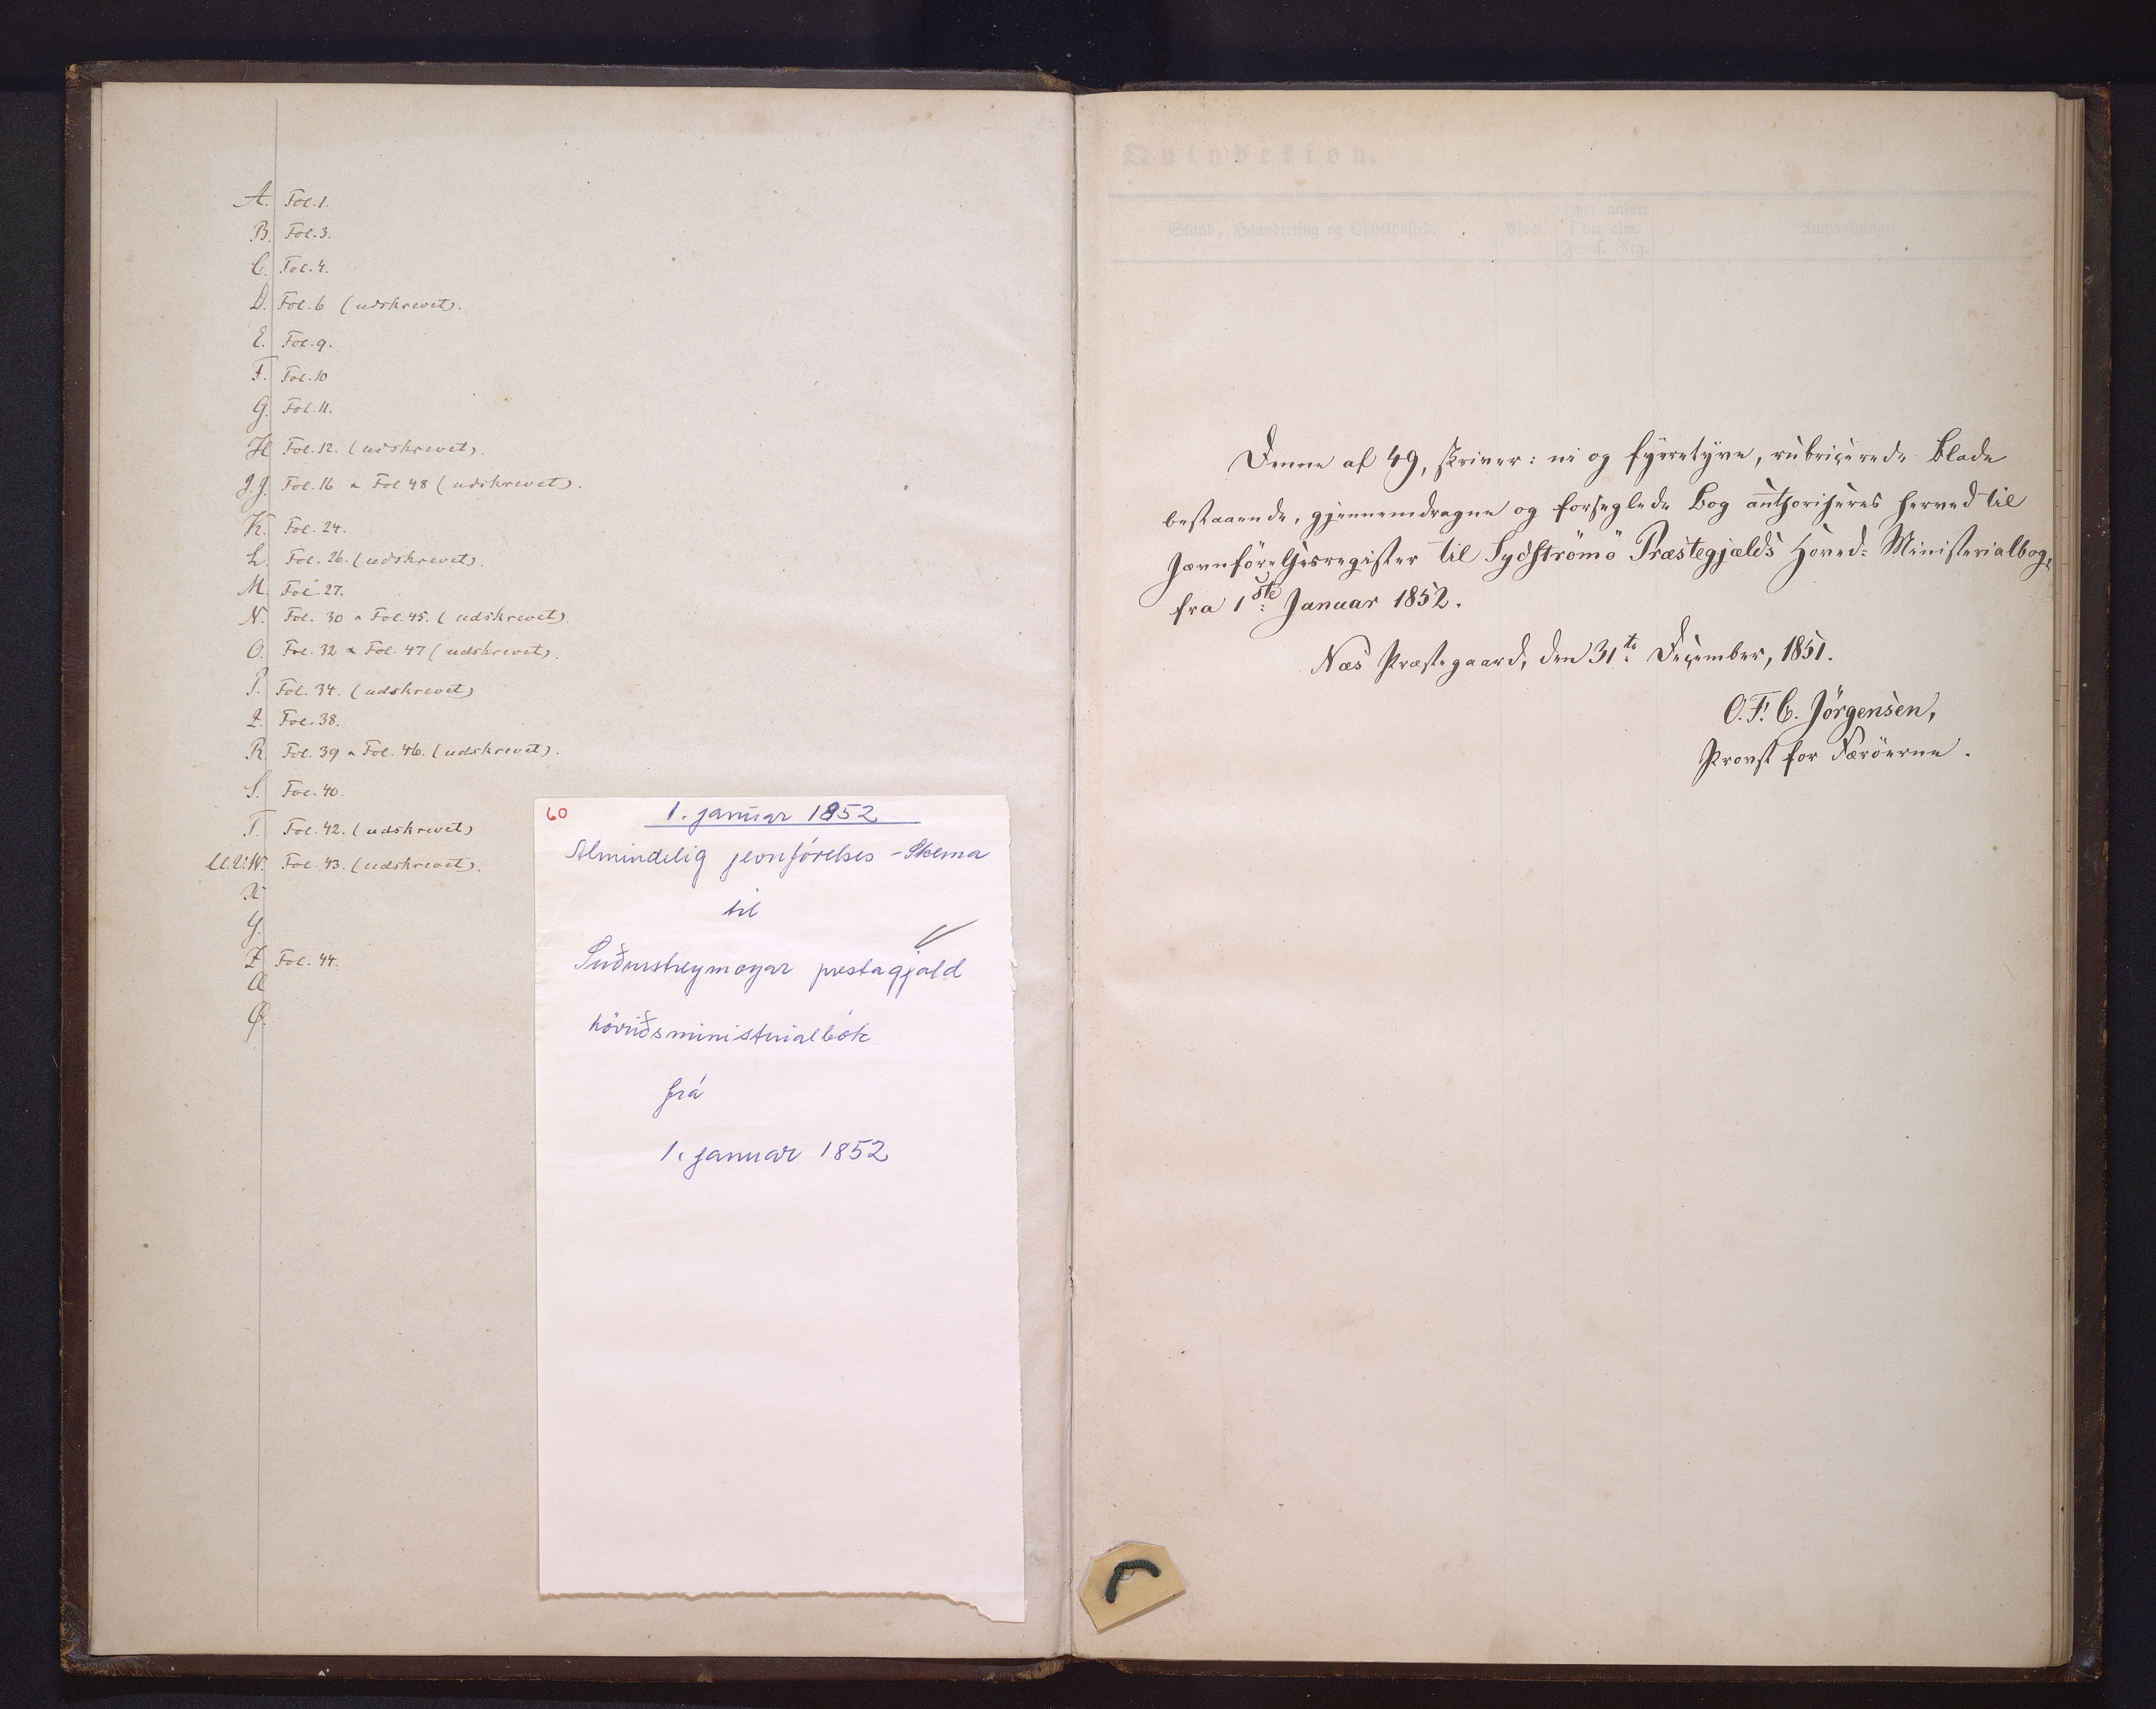 A. Fol. 1.
B. Fol. 3.
C. Fol. 4.
D. Fol. 6 (udskrevet).
E. Fol. 9.
F. Fol. 10
G. Fol. 11.
H Fol. 12. (udskrevet).
J.J. Fol. 16 a Fol 48 (udskrevet).
K. Fol. 24.
L. Fol. 26. (udskrevet).
M. Fol. 27.
N. Fol. 30 a Fol. 45. (udskrevet).
O. Fol. 32 a Fol. 47 (udskrevet).
P. Fol. 34. (udskrevet)
Q. Fol. 38.
R Fol. 39 a Fol. 46. (udskrevet).
S. Fol. 40.
T. Fol. 42. (udskrevet)
U.V.W. Fol. 43. (udskrevet).
X
Y.
Z Fol. 44.
Æ
Ø.
60
1. januar 1852
Almindelig jevnførelses - Skema
til
Suðurstreymoyar prestagjald
høvuðsministerialbók
frá
1. januar 1852
Qvindekjøn.
Stand, Haandtering og Opholdssted.
Alder.
Hvor anført
i det alm.
Jevnf. Reg.
Anmærkninger.
Denne af 49, skriver: ni og fyrretyve, rubricerede Blade
bestaaende, gjennemdragne og forseglede Bog authoriseres herved til
Jævnförelsesregister til Sydströmö Præstegjælds Hoved-Ministerialbog,
fra 1ste Januar 1852.
Næs Præstegaard, den 31te December, 1851.
O. F. C. Jörgensen,
Provst for Færöerne.